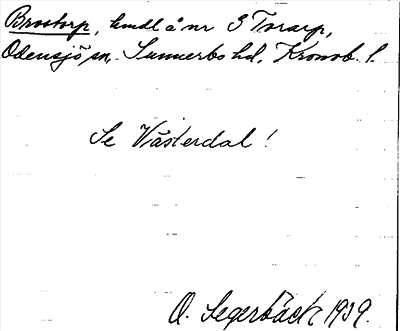 Brostorp, hmdl å nr 3 Torarp,
Odensjö sn, Sunnerbo hd, Kronob. l.
Se Västerdal!
O. Segerbäck 1939.